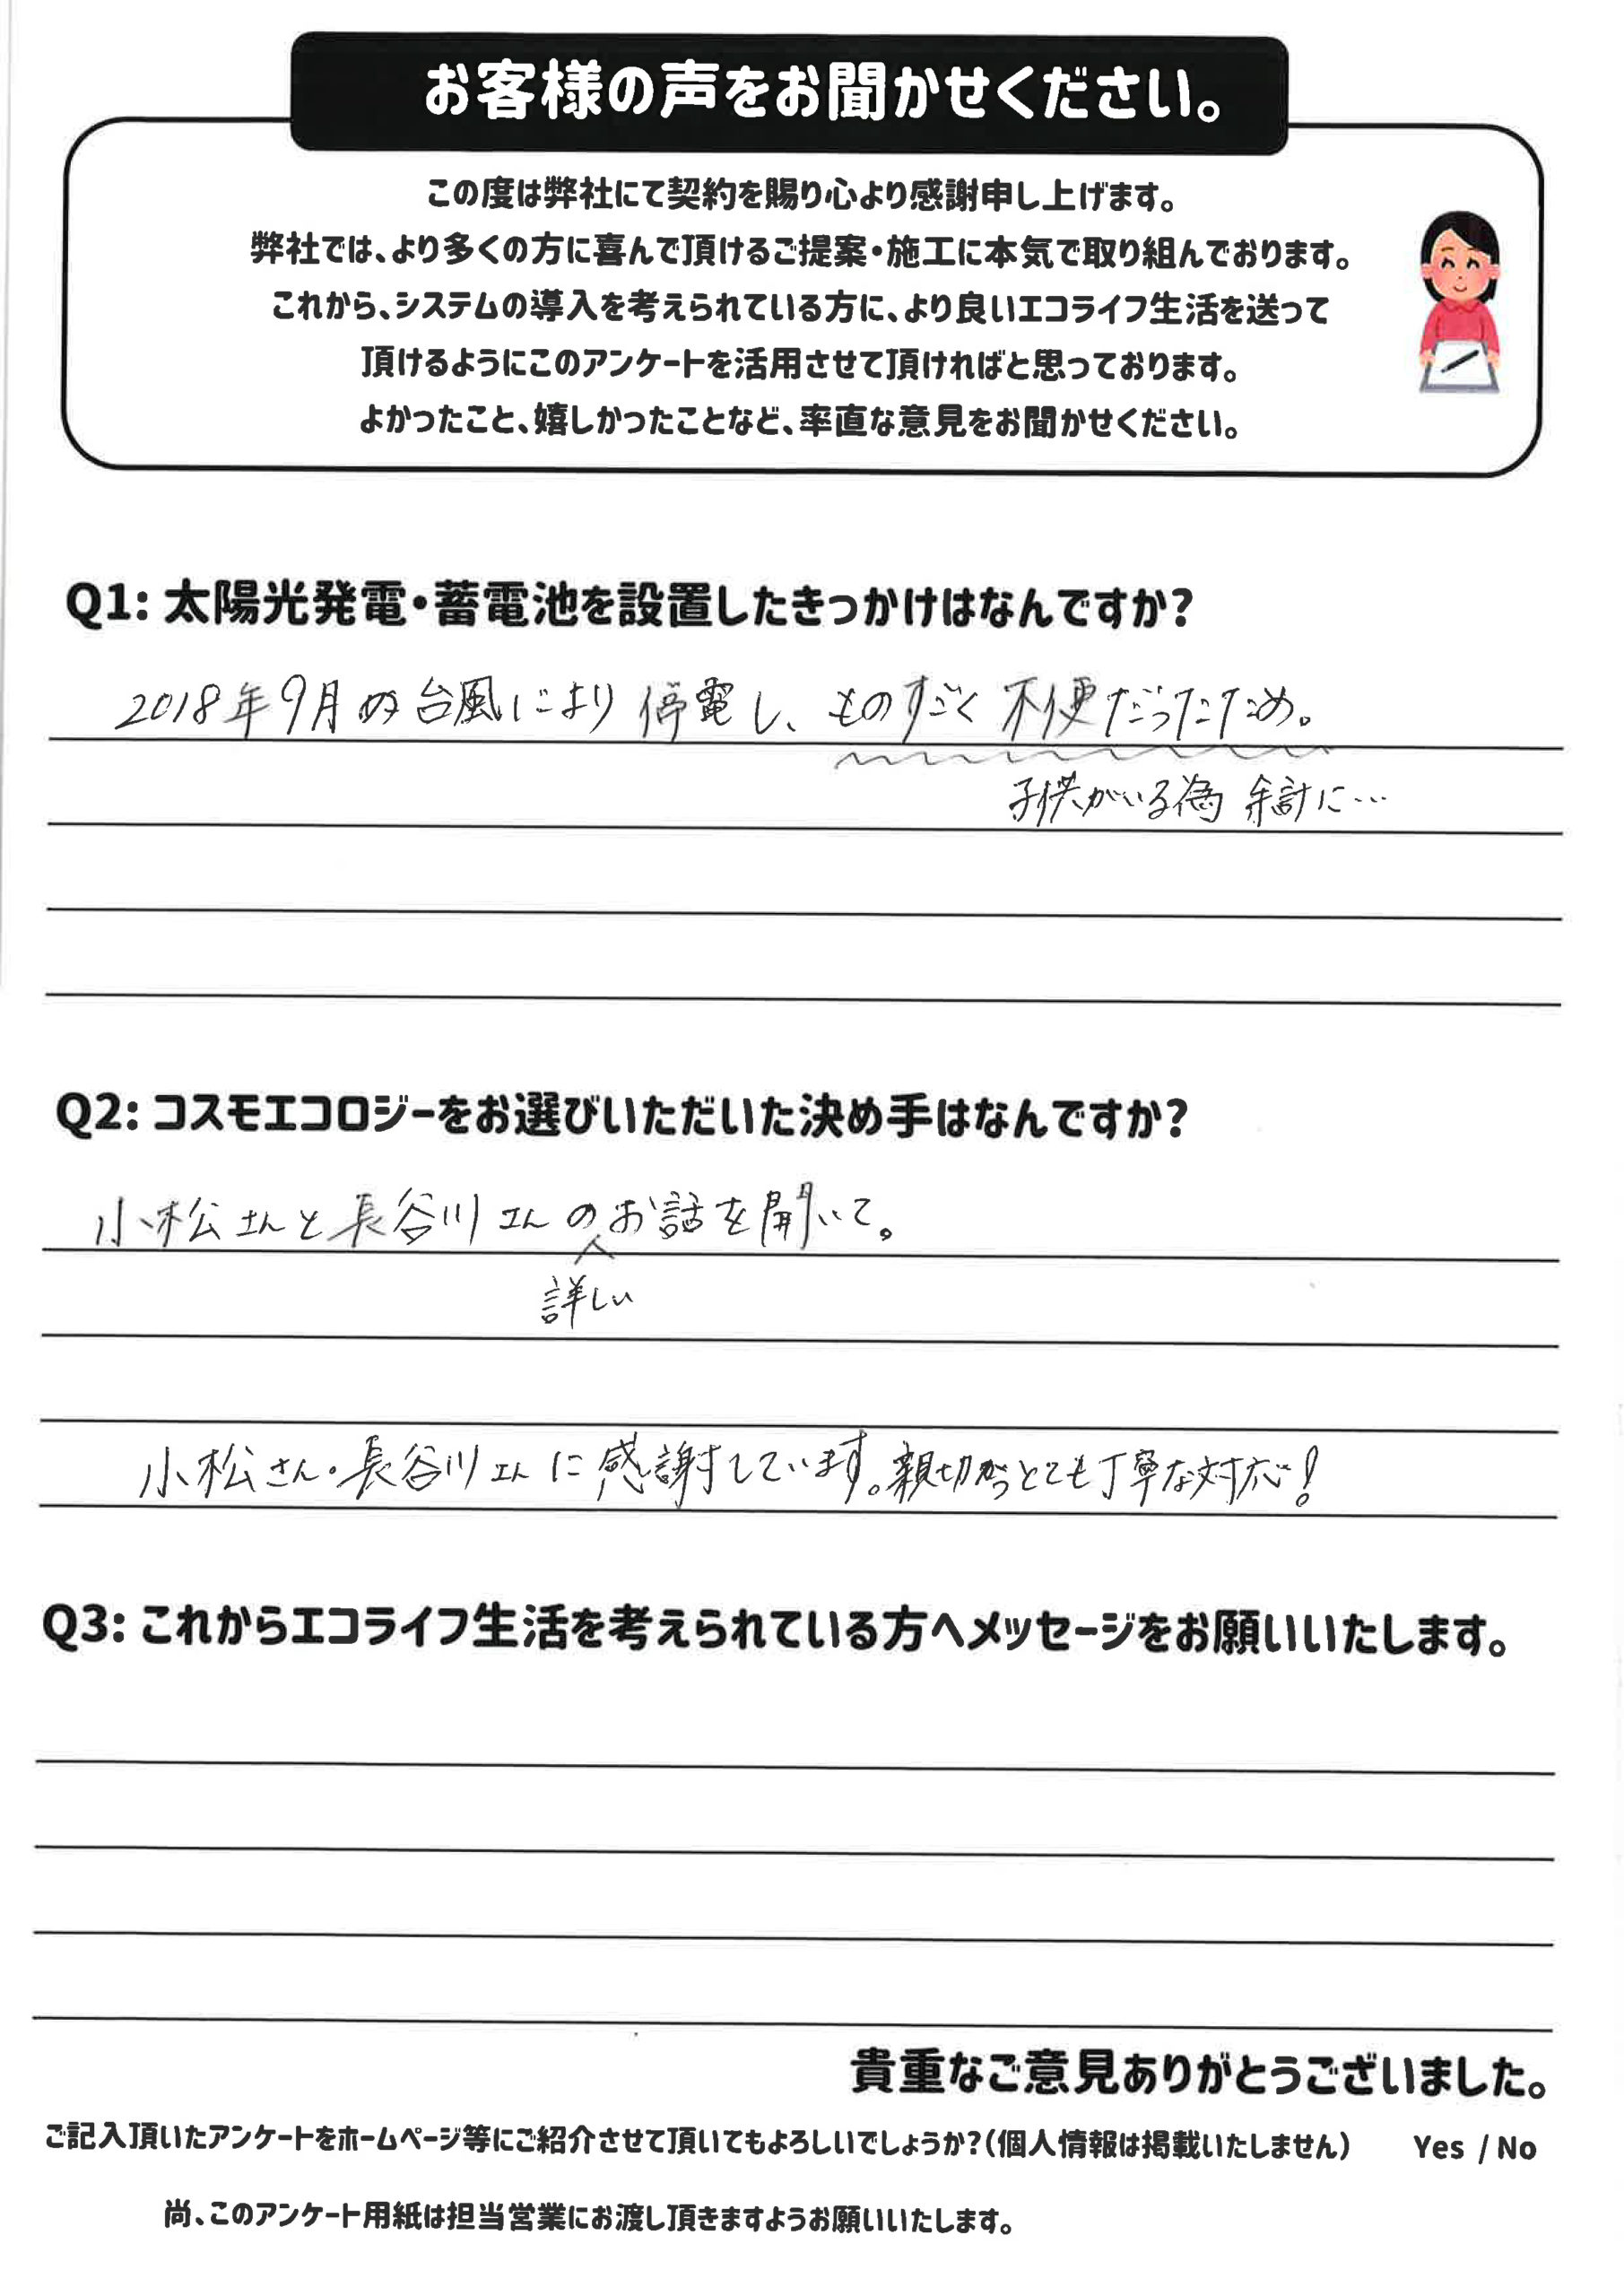 お客様の声をお聞かせください。
この度は弊社にて契約を賜り心より感謝申し上げます。
弊社では、より多くの方に喜んで頂けるご提案・施工に本気で取り組んでおります。
これから、システムの導入を考えられている方に、より良いエコライフ生活を送って
頂けるようにこのアンケートを活用させて頂ければと思っております。
よかったこと、嬉しかったことなど、率直な意見をお聞かせください。
Q1: 太陽光発電・蓄電池を設置したきっかけはなんですか?
2018年9月の台風により停電し、ものすごく不便だったため。
子供がいる為 余計に…
Q2: コスモエコロジーをお選びいただいた決め手はなんですか?
小松さんと長谷川さんのお話を聞いて。
詳しい
小松さん・長谷川さんに感謝しています。親切かつとても丁寧な対応!
Q3: これからエコライフ生活を考えられている方へメッセージをお願いいたします。
貴重なご意見ありがとうございました。
ご記入頂いたアンケートをホームページ等にご紹介させて頂いてもよろしいでしょうか?(個人情報は掲載いたしません) Yes / No
尚、このアンケート用紙は担当営業にお渡し頂きますようお願いいたします。